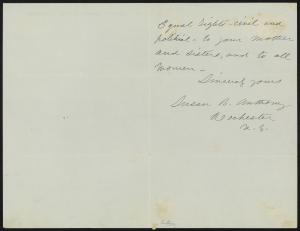 Equal rights - civil and
political - to your mother
and sisters, and to all
women -
Sincerely yours
Susan B. Anthony
Rochester
N. Y.